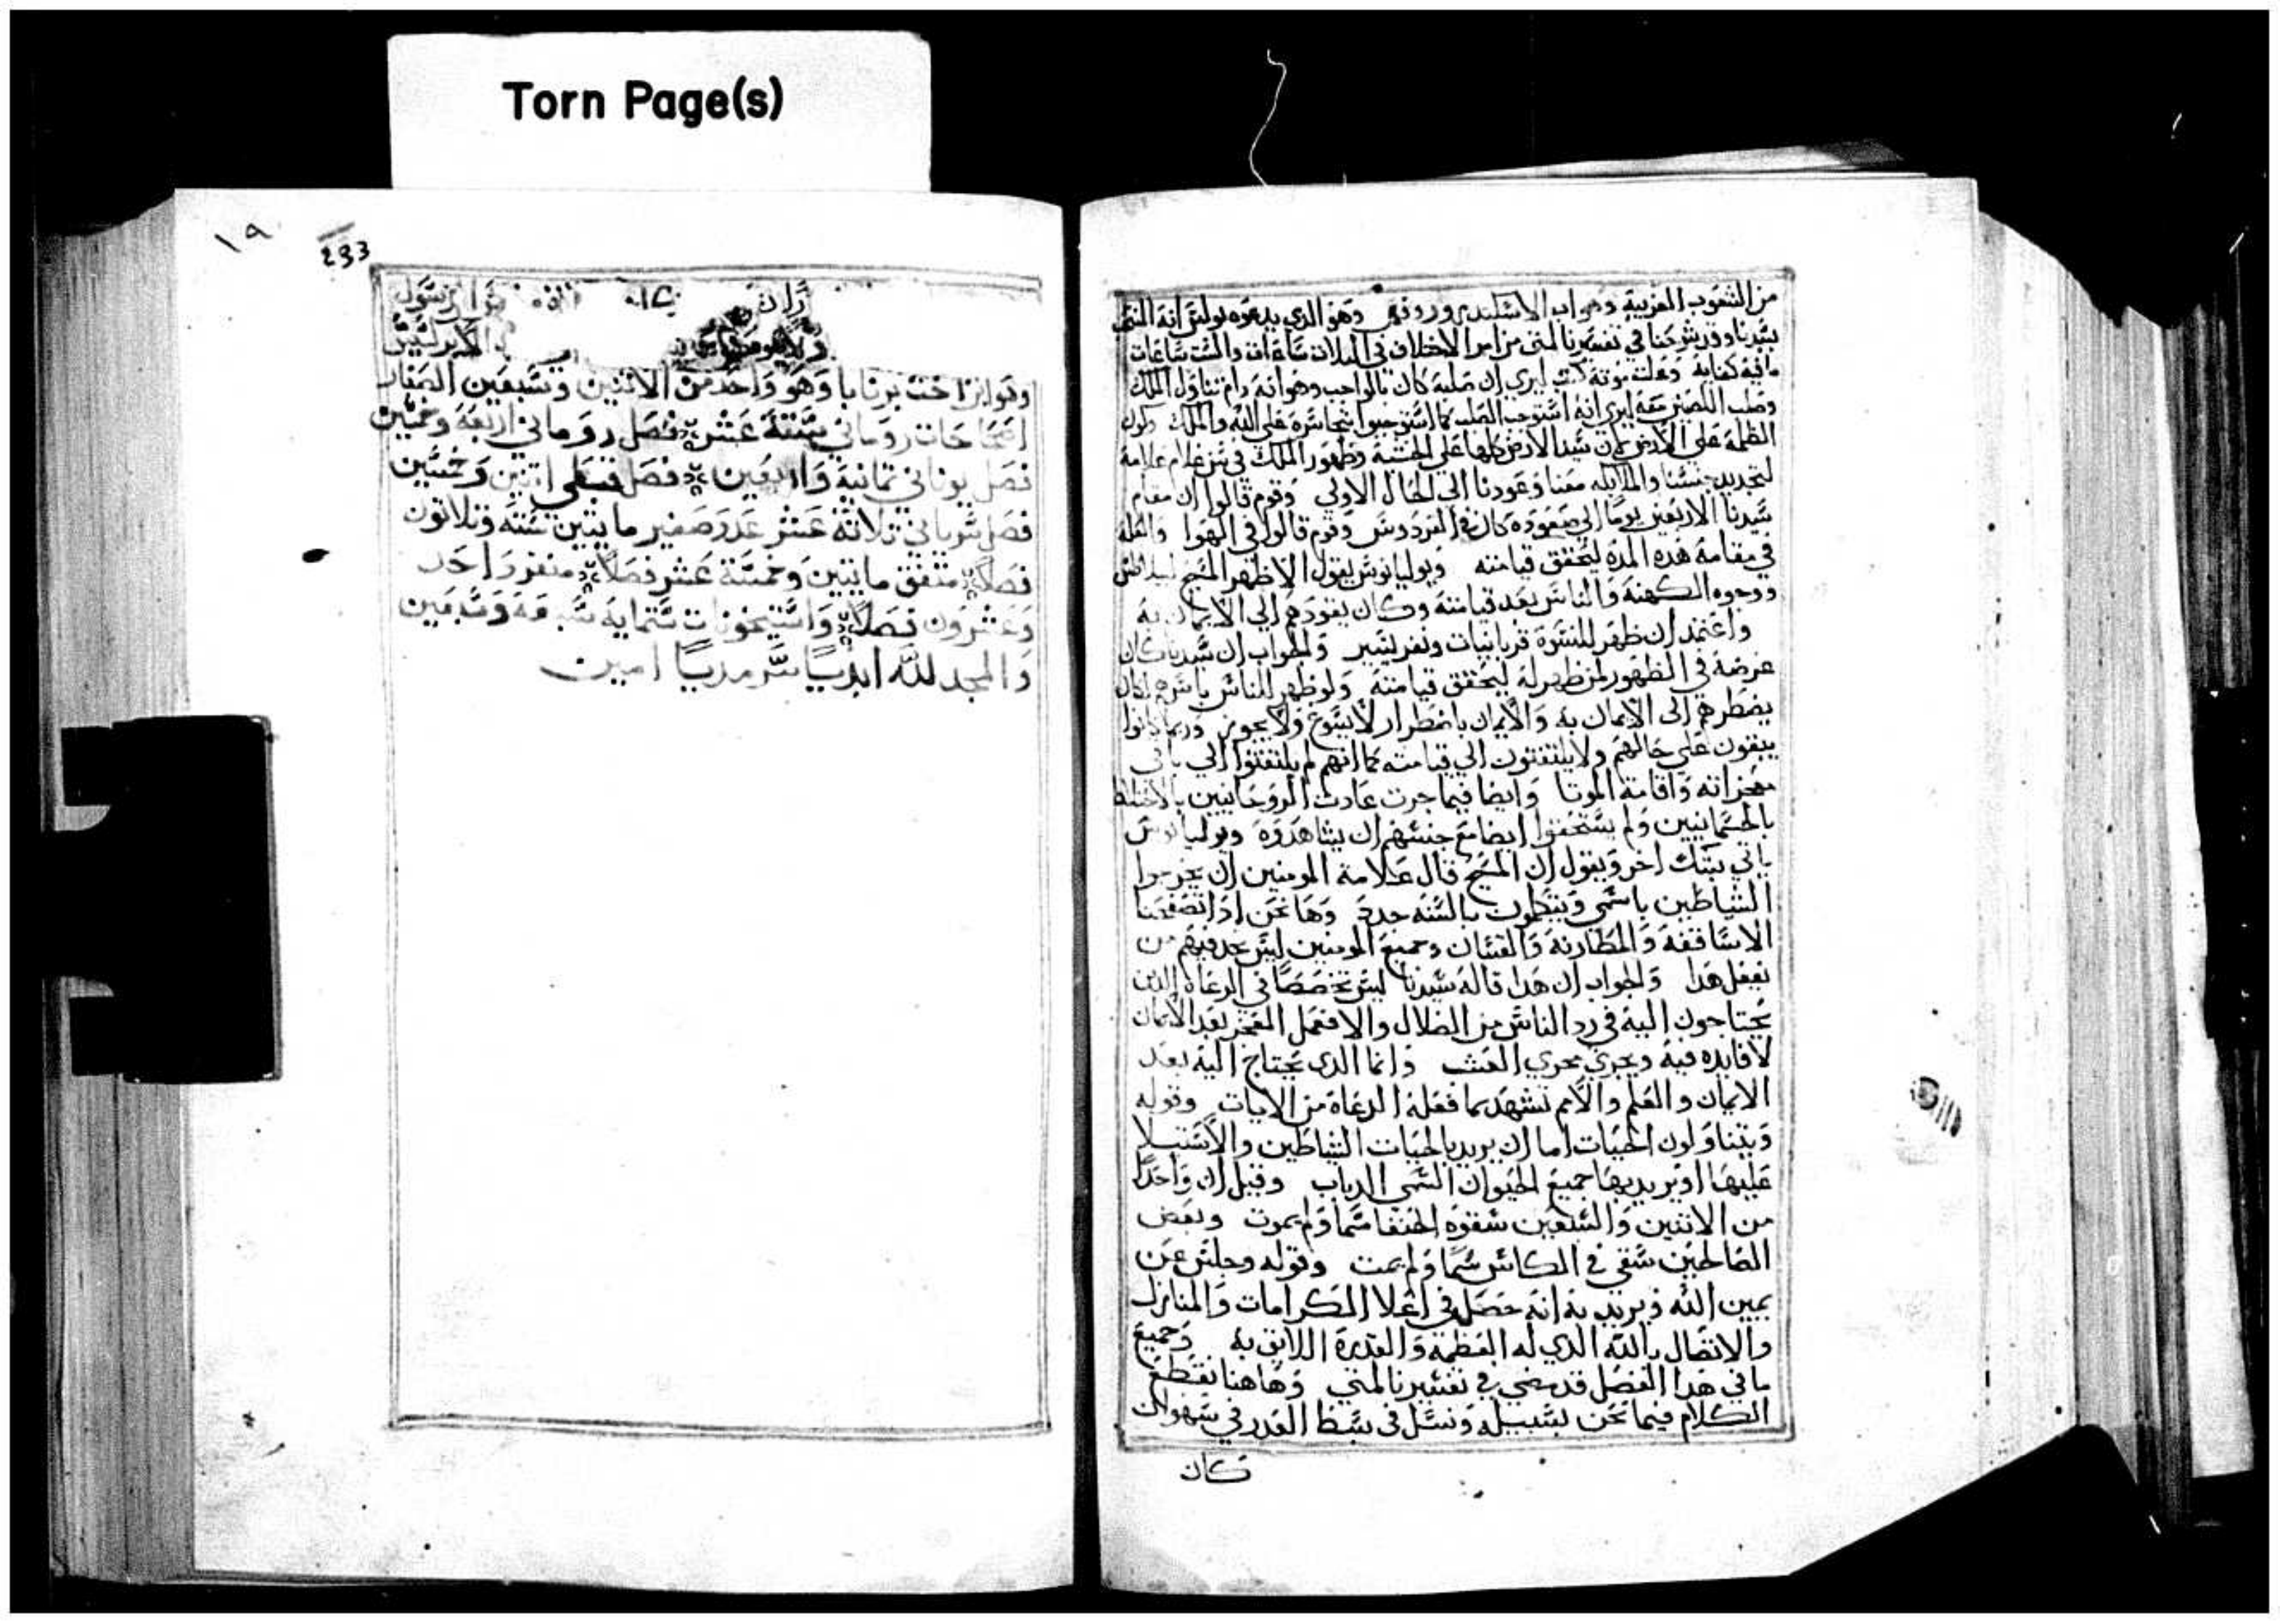 Torn Page(s)
من الشعوب الغريبة وهو اب الاسكندروس وروفس وهو الذي يدعوه لوقس انه
سيدنا وقد شرحنا في تفسيرنا لمتى من امر الاختلاف في الثلاث ساعات والست ساعات
ما فيه كفاية
وصلب اللصين معه ليري انه استوجب الصلب كما استوجبوا بتجاسره على الله والملك وكون
الظلمة على الارض لان سيد الارض كلها على الخشبة وظهور الملاك في شبه غلام علامة
لتجديد جنسنا والملايكه معنا وعودنا الي الحال الاولي وقوم قالوا ان مقام
سيدنا الاربعين يوما الي صعوده كان في الفردوس وقوم قالوا في الهوا والعله
في مقامه هده المدة ليتحقق قيامته ويوليانوس يقول الا ظهر المسيح لبيلاطس
ووجوه الكهنة والناس بعد قيامته وكان يقودهم الي الايمان به
واعتمد ان ظهر للنسوة ونفر يسير والجواب ان سيدنا كان
غرضه في الظهور لمن ظهر له ليتحقق قيامته ولو ظهر للناس باسرهم لكان
يضطرهم الى الايمان به والايمان باضطرار لا يسوغ ولا يجوز وربما كانوا
يبقون على حالهم ولا يلتفتون الي قيامته كما انهم لم يلتفتوا الي باقي
معجزاته واقامة الموتا وايضا فيما جرت عادت الروحانيين بالاختلاط
بالجسمانيين ولم يستحقوا ايضا مع جنسهم ان يشاهدوه ويوليانوس
ياتي بشك اخر ويقول ان المسيح قال علامة المومنين ان يخرجوا
الشياطين باسمي ويتكلمون بالسنه جدد وها نحن ادا تصفحنا
الاساقفة والمطارنة والقسان وجميع المومنين ليس نجد فيهم من
يفعل هدا والجواب ان هدا قاله سيدنا ليس تخصصا في الرعاة الدين
يحتاجون اليه في رد الناس من الضلال والا ففعل المعجز بعد الايمان
لا فايده فيه ويجري مجري العبث وانما الدى يحتاج اليه بعد
الايمان والعلم والامم تشهد بما فعله الرعاة من الايات وقوله
ويتناولون الحيات اما ان يريد بالحيات الشياطين والاستيلا
عليها او يريد بها جميع الحيوان السمي الدباب وقيل ان واحدا
من الاتنين والسبعين سقوه الحنفا سما ولم يموت وبعض
الصالحين سقي في الكاس سما ولم يمت وقوله وجلس عن
يمين الله ويريد به انه حصل في اعلا الكرامات والمنازل
والاتصال بالله الدي له العظمة والقدرة اللايق به وجميع
ما في هدا الفصل قد مضي في تفسيرنا لمتي وهاهنا نقطع
الكلام فيما نحن بسبيله ونسل في بسط العدر في سهو ان
كان
١٩
233
الرسول
وهو ابن اخت برنابا وهو واحد من الاثنين وسبعين الصغار
اصحاحات روماني ستة عشر فصل روماني اربعة وخمسين
فصل يوناني ثمانية واربعين فصل قبطي اتنين وخمسين
فصل سرياني تلاتة عشر عدد صغير مايتين ستة وتلاتون
فصلا متفق مايتين وخمسة عشر فصلا منفرد واحد
وعشرون فصلا واستيخونات ستمايه سبعه وسبعين
والمجد لله ابديا سرمديا امين